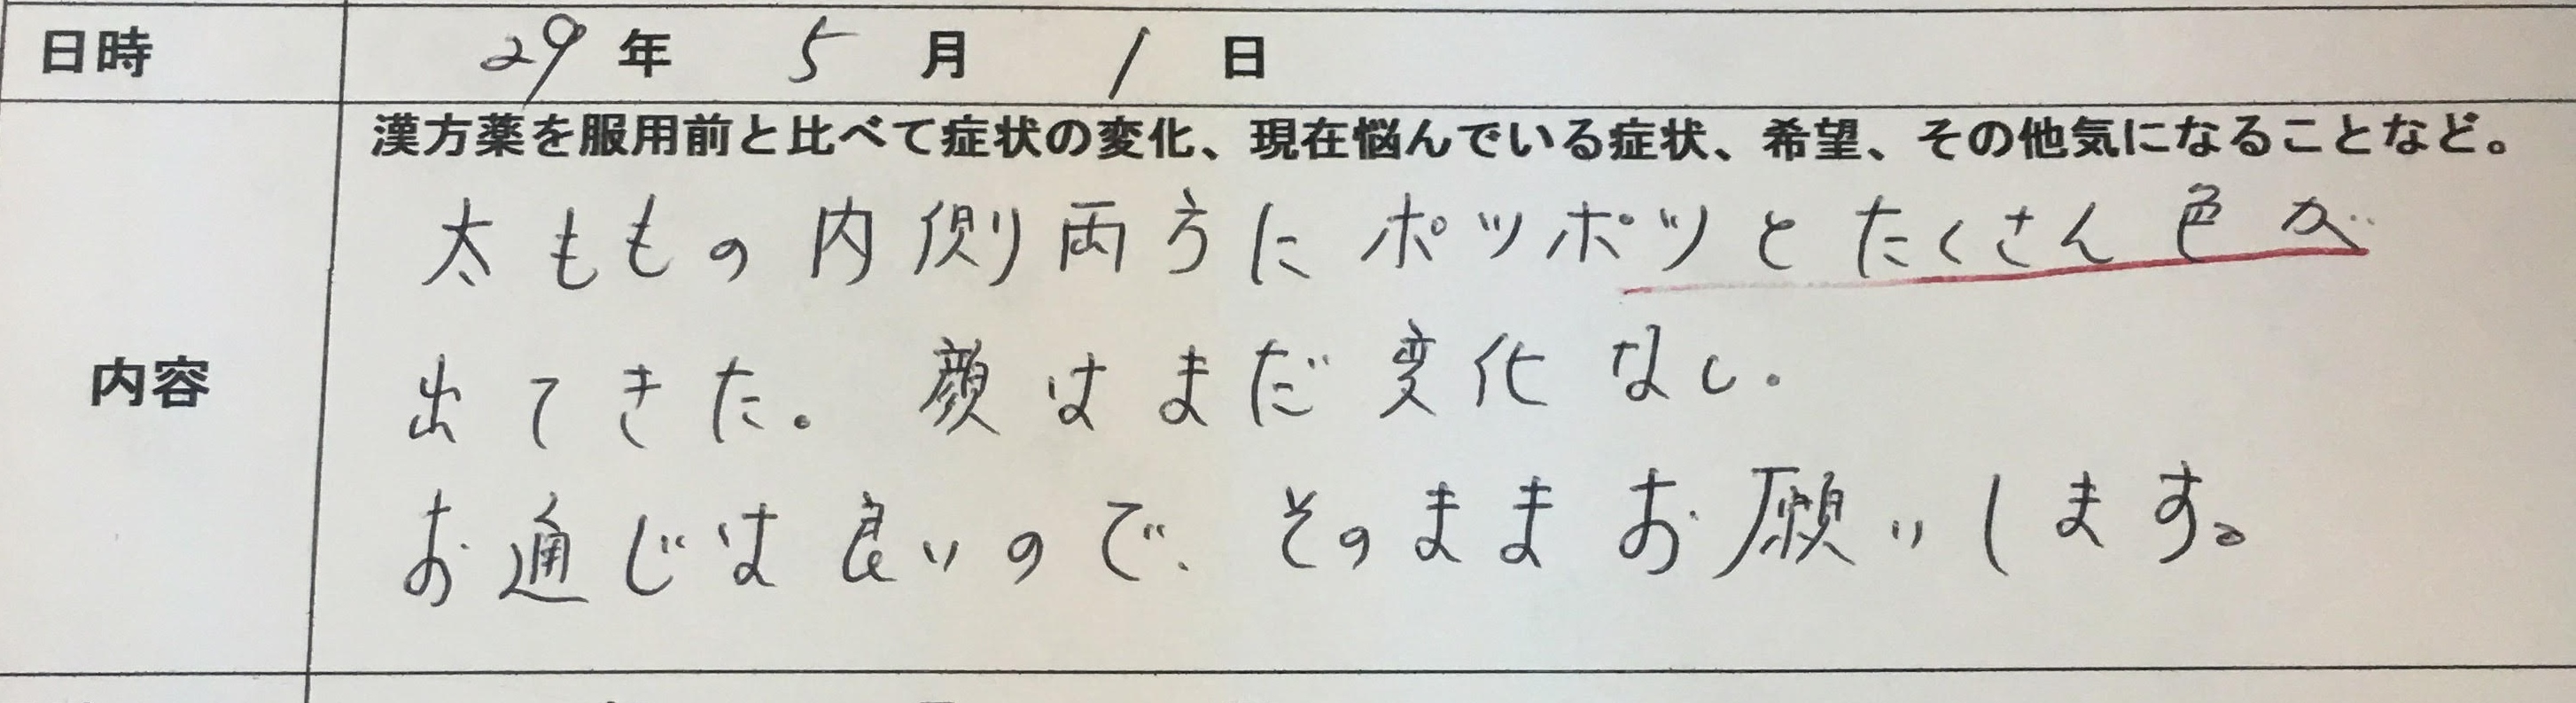 日時 29年 5月 1日
漢方薬を服用前と比べて症状の変化、現在悩んでいる症状、希望、その他気になることなど。
太ももの内側両方にポツポツとたくさん色が
出てきた。顔はまだ変化なし.
内容
お通じは良いので、そのままお願いします。